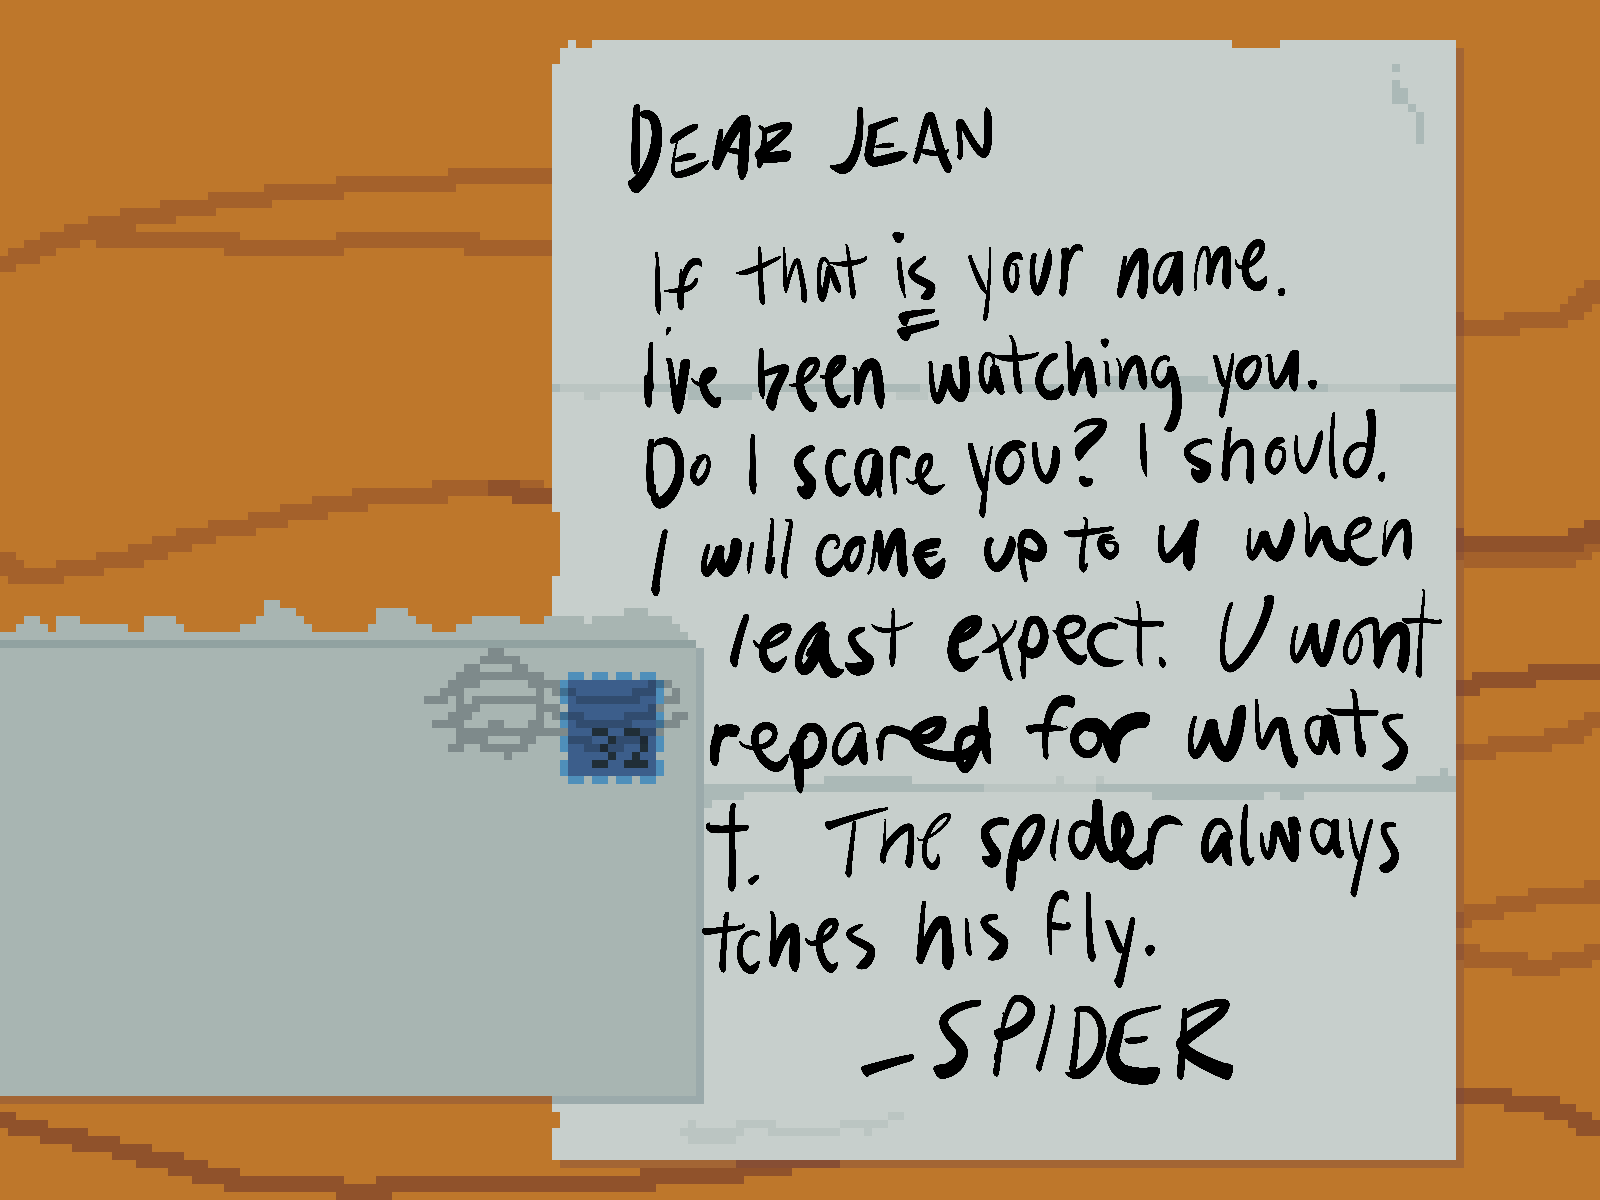 DEAR JEAN
If that is your name.
I've been watching you.
Do I scare you? I should.
I will come up to u when
least expect. U wont
repared for whats
t. The spider always
tches his fly.
-SPIDER
32